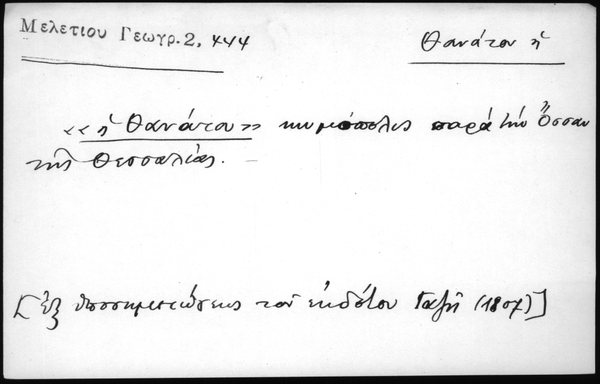 Μελετίου Γεωγρ. 2, 444
Θανάτου ἡ
«« ἡ Θανάτου »» κωμόπολις παρὰ τὴν Ὄσσαν
τῆς Θεσσαλίας.
[Ἐξ ὑποσημειώσεως τοῦ ἐκδότου Γαζῆ (1807)]